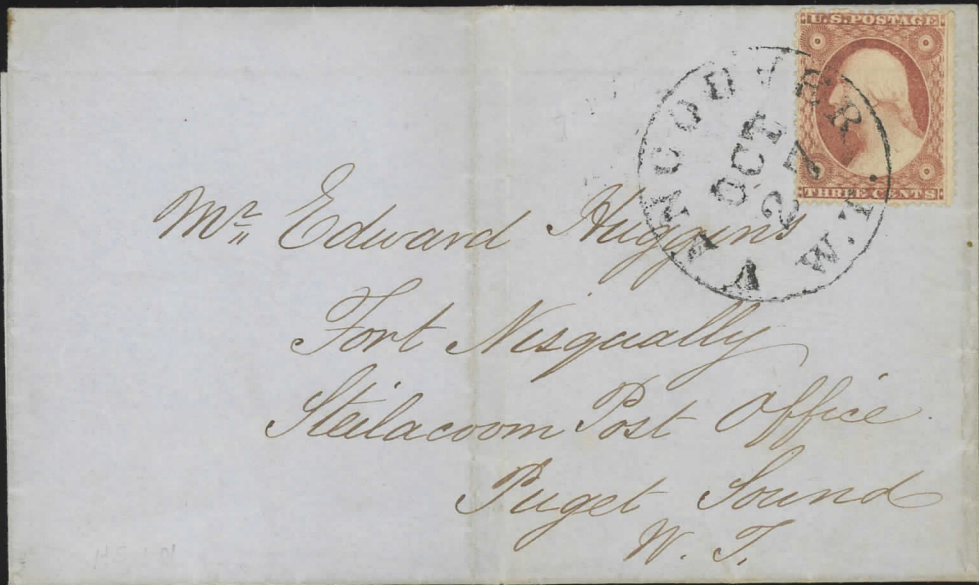 U.S. POSTAGE
THREE CENTS
VANCOUVER W.T.
OCT
27
Mr. Edward Huggins
Fort Nisqually
Steilacoom Post Office
Puget Sound
W. T.